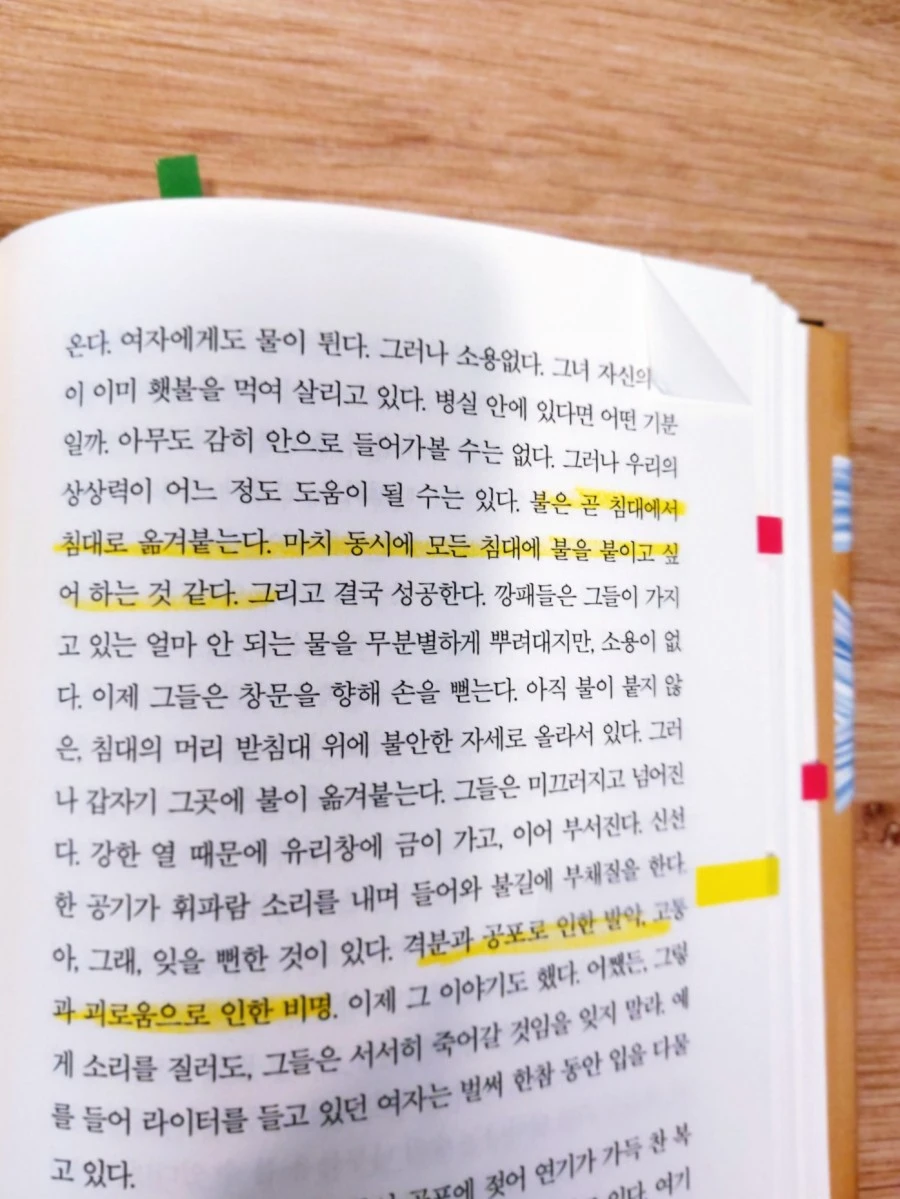 온다. 여자에게도 물이 튄다. 그러나 소용없다. 그녀 자신의
이 이미 횃불을 먹여 살리고 있다. 병실 안에 있다면 어떤 기분
일까. 아무도 감히 안으로 들어가볼 수는 없다. 그러나 우리의
상상력이 어느 정도 도움이 될 수는 있다. 불은 곧 침대에서
침대로 옮겨붙는다. 마치 동시에 모든 침대에 불을 붙이고 싶
어 하는 것 같다. 그리고 결국 성공한다. 깡패들은 그들이 가지
고 있는 얼마 안 되는 물을 무분별하게 뿌려대지만, 소용이 없
다. 이제 그들은 창문을 향해 손을 뻗는다. 아직 불이 붙지 않
은, 침대의 머리 받침대 위에 불안한 자세로 올라서 있다. 그러
나 갑자기 그곳에 불이 옮겨붙는다. 그들은 미끄러지고 넘어진
다. 강한 열 때문에 유리창에 금이 가고, 이어 부서진다. 신선
한 공기가 휘파람 소리를 내며 들어와 불길에 부채질을 한다.
아, 그래, 잊을 뻔한 것이 있다. 격분과 공포로 인한 발악, 고통
과 괴로움으로 인한 비명. 이제 그 이야기도 했다. 어쨌든, 그렇
게 소리를 질러도, 그들은 서서히 죽어갈 것임을 잊지 말라. 예
를 들어 라이터를 들고 있던 여자는 벌써 한참 동안 입을 다물
고 있다.
공포에 젖어 연기가 가득 찬 복
있다. 여기